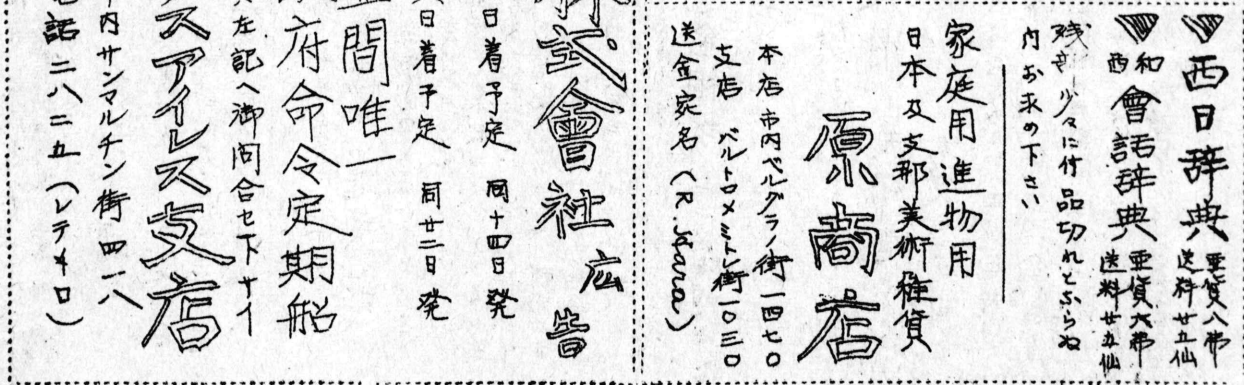 西日辞典 亜貨八弗
送料廿五仙
和西會話辞典 亜貨六弗
送料廿五仙
残部少々に付品切れとならぬ
内お求め下さい
家庭用進物用
日本及支那美術雑貨
原商店
本店 市内ベルグラノ街一四七〇
支店 バルトロメミトレ街一〇三〇
送金宛名
式會社 広告
日着予定 同十四日発
日着予定 同廿二日発
間唯一
府命令定期船
左記へ御問合セ下サイ
スアイレス支店
内サンマルチン街四一八
話 二八二五 (レチーロ)